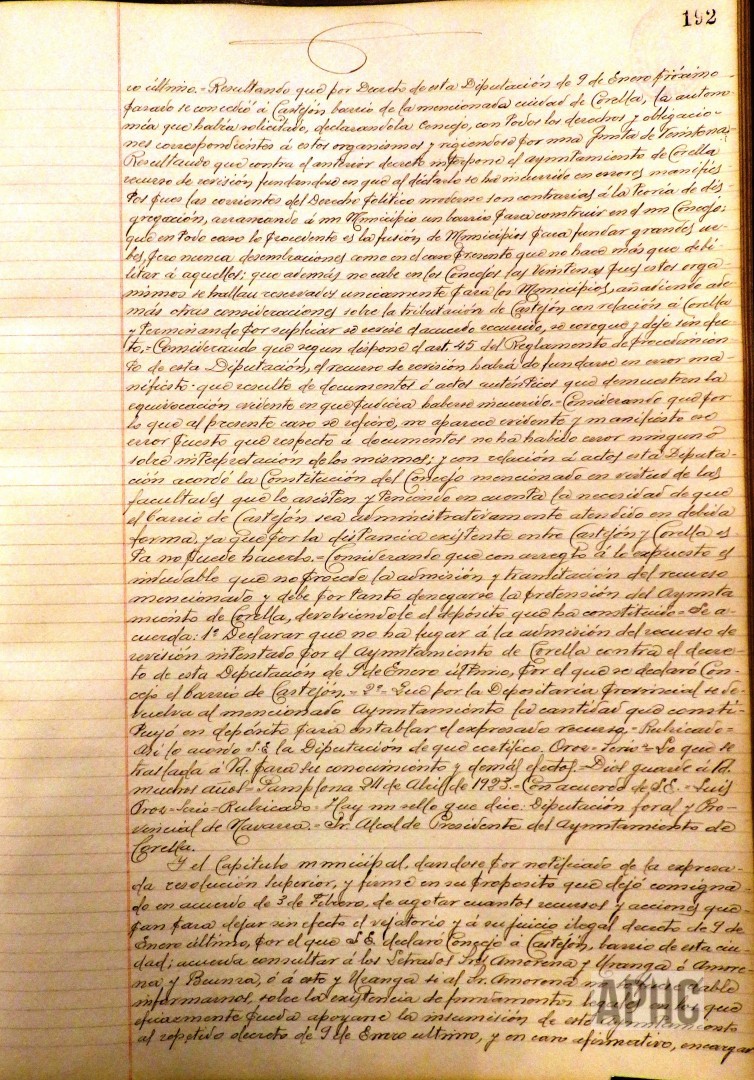 192
ro último.= Resultando que por Decreto de esta Diputación de 9 de Enero próximo
pasado se concedió á Castejón barrio de la mencionada ciudad de Corella, la autono-
mía que había solicitado, declarandola Concejo, con todos los derechos y obligacio-
nes correspondientes á estos organismos y rigiendose por una Junta de Veintena=
Resultando que contra el anterior decreto interpone el ayuntamiento de Corella
recurso de revisión fundandose en que al dictarlo se ha incurrido en errores manifies-
tos pues las corrientes del Derecho político moderno son contrarias á la teoria de dis-
gregación, arrancando á un Municipio un barrio para construir en el un Concejo;
que en todo caso lo procedente es la fusión de Municipios para fundar grandes ur-
bes, pero nunca desmembraciones como en el caso presente que no hace más que debi-
litar á aquellos; que además no cabe en los Concejos las Veintenas pues estos orga-
nismos se hallan reservados unicamente para los Municipios, añadiendo ade-
más otras consideraciones sobre la tributación de Castejón con relación á Corella
y terminando por suplicar se revise el acuerdo recurrido, se revoque y deje sin efec-
to.= Considerando que segun dispone el art. 45 del Reglamento de procedimien-
to de esta Diputación, el recurso de revisión habrá de fundarse en error ma-
nifiesto que resulte de documentos ó actos auténticos que demuestren la
equivocación evidente en que pudiera haberse incurrido.= Considerando que por
lo que al presente caso se refiere, no aparece evidente y manifiesto ese
error puesto que respecto á documentos no ha habido error ninguno
sobre interpretación de los mismos; y con relación á actos esta Diputa-
ción acordó la Constitución del Concejo mencionado en virtud de las
facultades que le asisten y teniendo en cuenta la necesidad de que
el barrio de Castejón sea administrativamente atendido en debida
forma, ya que por la distancia existente entre Castejón y Corella es-
ta no puede hacerlo.= Considerando que con arreglo á lo expuesto es
indudable que no procede la admisión y tramitación del recurso
mencionado y debe por tanto denegarse la pretensión del Ayunta-
miento de Corella, devolviendole el depósito que ha constituido= Se a-
cuerda: 1º Declarar que no ha lugar á la admisión del recurso de
revisión intentado por el Ayuntamiento de Corella contra el decre-
to de esta Diputación de 9 de Enero último, por el que se declaró Con-
cejo el barrio de Castejón.= 2º= Que por la Depositaria provincial se de-
vuelva al mencionado Ayuntamiento la cantidad que consti-
tuyó en depósito para entablar el expresado recurso.= Rubricado=
Asi lo acordó S.E. la Diputación de que certifico. Oroz= Srio= Lo que se
traslada á Vd. para su conocimiento y demás efectos= Dios guarde á Vd.
muchos años= Pamplona 24 de Abril de 1923.= Con acuerdo de S.E.= Luis
Oroz= Srio= Rubricado= Hay un sello que dice: Diputación foral y Pro-
vincial de Navarra.= Sr. Alcalde Presidente del Ayuntamiento de
Corella.
Y el Capitulo municipal, dandose por notificado de la expresa-
da resolución superior, y firme en su proposito que dejó consigna-
do en acuerdo de 3 de Febrero, de agotar cuantos recursos y acciones que-
pan para dejar sin efecto el vejatorio y á su juicio ilegal decreto de 9 de
Enero último, por el que S.E. declaró Concejo á Castejón, barrio de esta ciu-
dad; acuerda consultar á los Letrados Sres Amorena y Uranga ó Amore-
na y Beunza, ó á este y Uranga si al Sr. Amorena no le
informarnos, sobre la existencia de fundamentos legales en que
eficazmente pueda apoyarse la insumisión de este Ayuntamiento
al repetido decreto de 9 de Enero ultimo, y en caso afirmativo, encargar
APHC